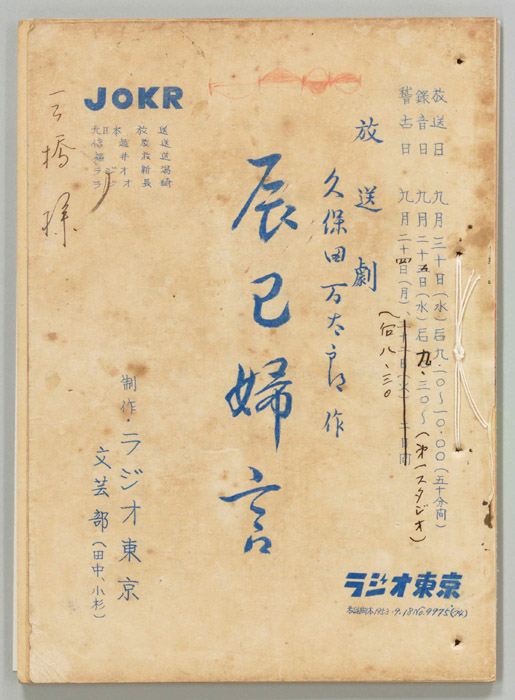 放送日 九月三十日(水)后九.一〇～一〇.〇〇(五十分間)
録音日 九月二十五日(水)后九.三〇～(第一スタジオ)
稽古日 九月二十四日(月)
(后八.三〇
放送劇
久保田万太郎作
辰巳婦言
JOKR
大日本放送
信越放送
福井放送
ラジオ新潟
ラジオ長崎
三橋様
制作・ラジオ東京
文芸部(田中、小杉)
ラジオ東京